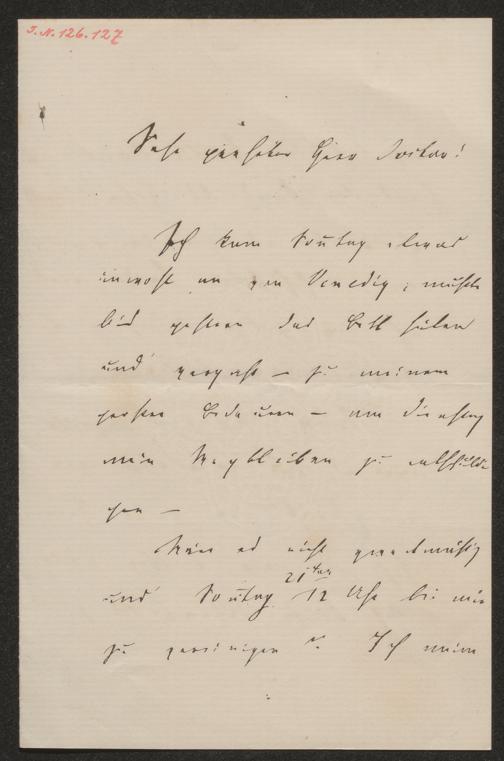 I.N. 126.127
Sehr geehrter Herr Doctor!
Ich kam Sonntag etwas
unwohl an von Venedig, mußte
bis gestern das Bett hüten
und vergaß – zu meinem
großen Bedauern – am Dienstag
mein Wegbleiben zu entschuldi
gen –
Wäre es nicht zweckmäßig
21ten
uns Sonntag 12 Uhr bei mir
zu vereinigen ?. Ich meine